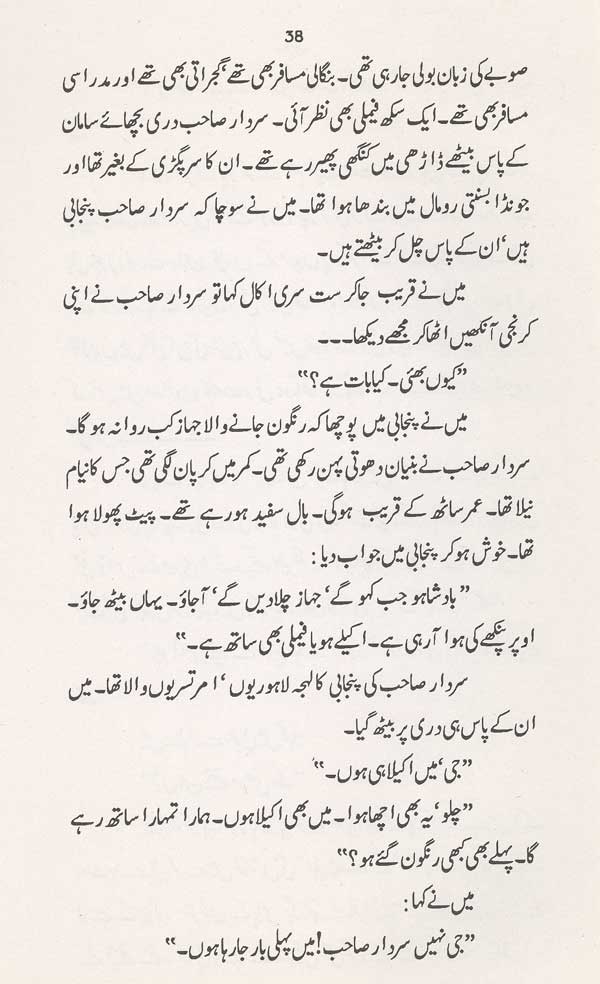 38
صوبے کی زبان بولی جا رہی تھی۔ بنگالی مسافر بھی تھے، گجراتی بھی تھے اور مدراسی
مسافر بھی تھے۔ ایک سکھ فیملی بھی نظر آئی۔ سردار صاحب دری بچھائے سامان
کے پاس بیٹھے ڈاڑھی میں کنگھی پھیر رہے تھے۔ ان کا سر پگڑی کے بغیر تھا اور
جونڈا بسنتی رومال میں بندھا ہوا تھا۔ میں نے سوچا کہ سردار صاحب پنجابی
ہیں، ان کے پاس چل کر بیٹھتے ہیں۔
میں نے قریب جا کر ست سری اکال کہا تو سردار صاحب نے اپنی
کرنجی آنکھیں اٹھا کر مجھے دیکھا۔۔۔
”کیوں بھئی۔ کیا بات ہے؟“
میں نے پنجابی میں پوچھا کہ رنگون جانے والا جہاز کب روانہ ہو گا۔
سردار صاحب نے بنیان دھوتی پہن رکھی تھی۔ کمر میں کرپان لگی تھی جس کا نیام
نیلا تھا۔ عمر ساٹھ کے قریب ہوگی۔ بال سفید ہو رہے تھے۔ پیٹ پھولا ہوا
تھا۔ خوش ہو کر پنجابی میں جواب دیا:
”بادشاہو جب کہو گے، جہاز چلا دیں گے، آ جاؤ۔ یہاں بیٹھ جاؤ۔
اوپر پنکھے کی ہوا آ رہی ہے۔ اکیلے ہو یا فیملی بھی ساتھ ہے۔“
سردار صاحب کی پنجابی کا لہجہ لاہوریوں، امرتسریوں والا تھا۔ میں
ان کے پاس ہی دری پر بیٹھ گیا۔
”جی، میں اکیلا ہی ہوں۔“
”چلو، یہ بھی اچھا ہوا۔ میں بھی اکیلا ہوں۔ ہمارا تمہارا ساتھ رہے
گا۔ پہلے بھی کبھی رنگون گئے ہو؟“
میں نے کہا:
”جی نہیں سردار صاحب! میں پہلی بار جا رہا ہوں۔“